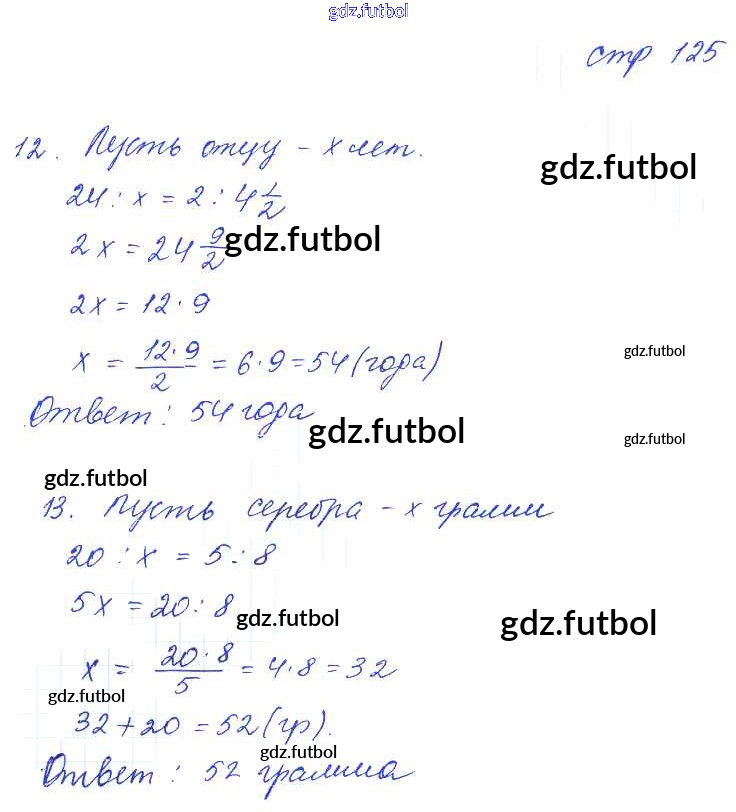 gdz.futbol
стр 125
12. Пусть отцу - x лет.
gdz.futbol
24 : x = 2 : 4 1/2
2x = 24 9/2 gdz.futbol
2x = 12 · 9
x = 12·9/2 = 6·9 = 54 (года) gdz.futbol
Ответ: 54 года gdz.futbol gdz.futbol
gdz.futbol
13. Пусть серебра - x грамм
20 : x = 5 : 8
5x = 20 : 8 gdz.futbol gdz.futbol
x = 20·8/5 = 4·8 = 32
gdz.futbol
32 + 20 = 52 (гр).
gdz.futbol
Ответ: 52 грамма